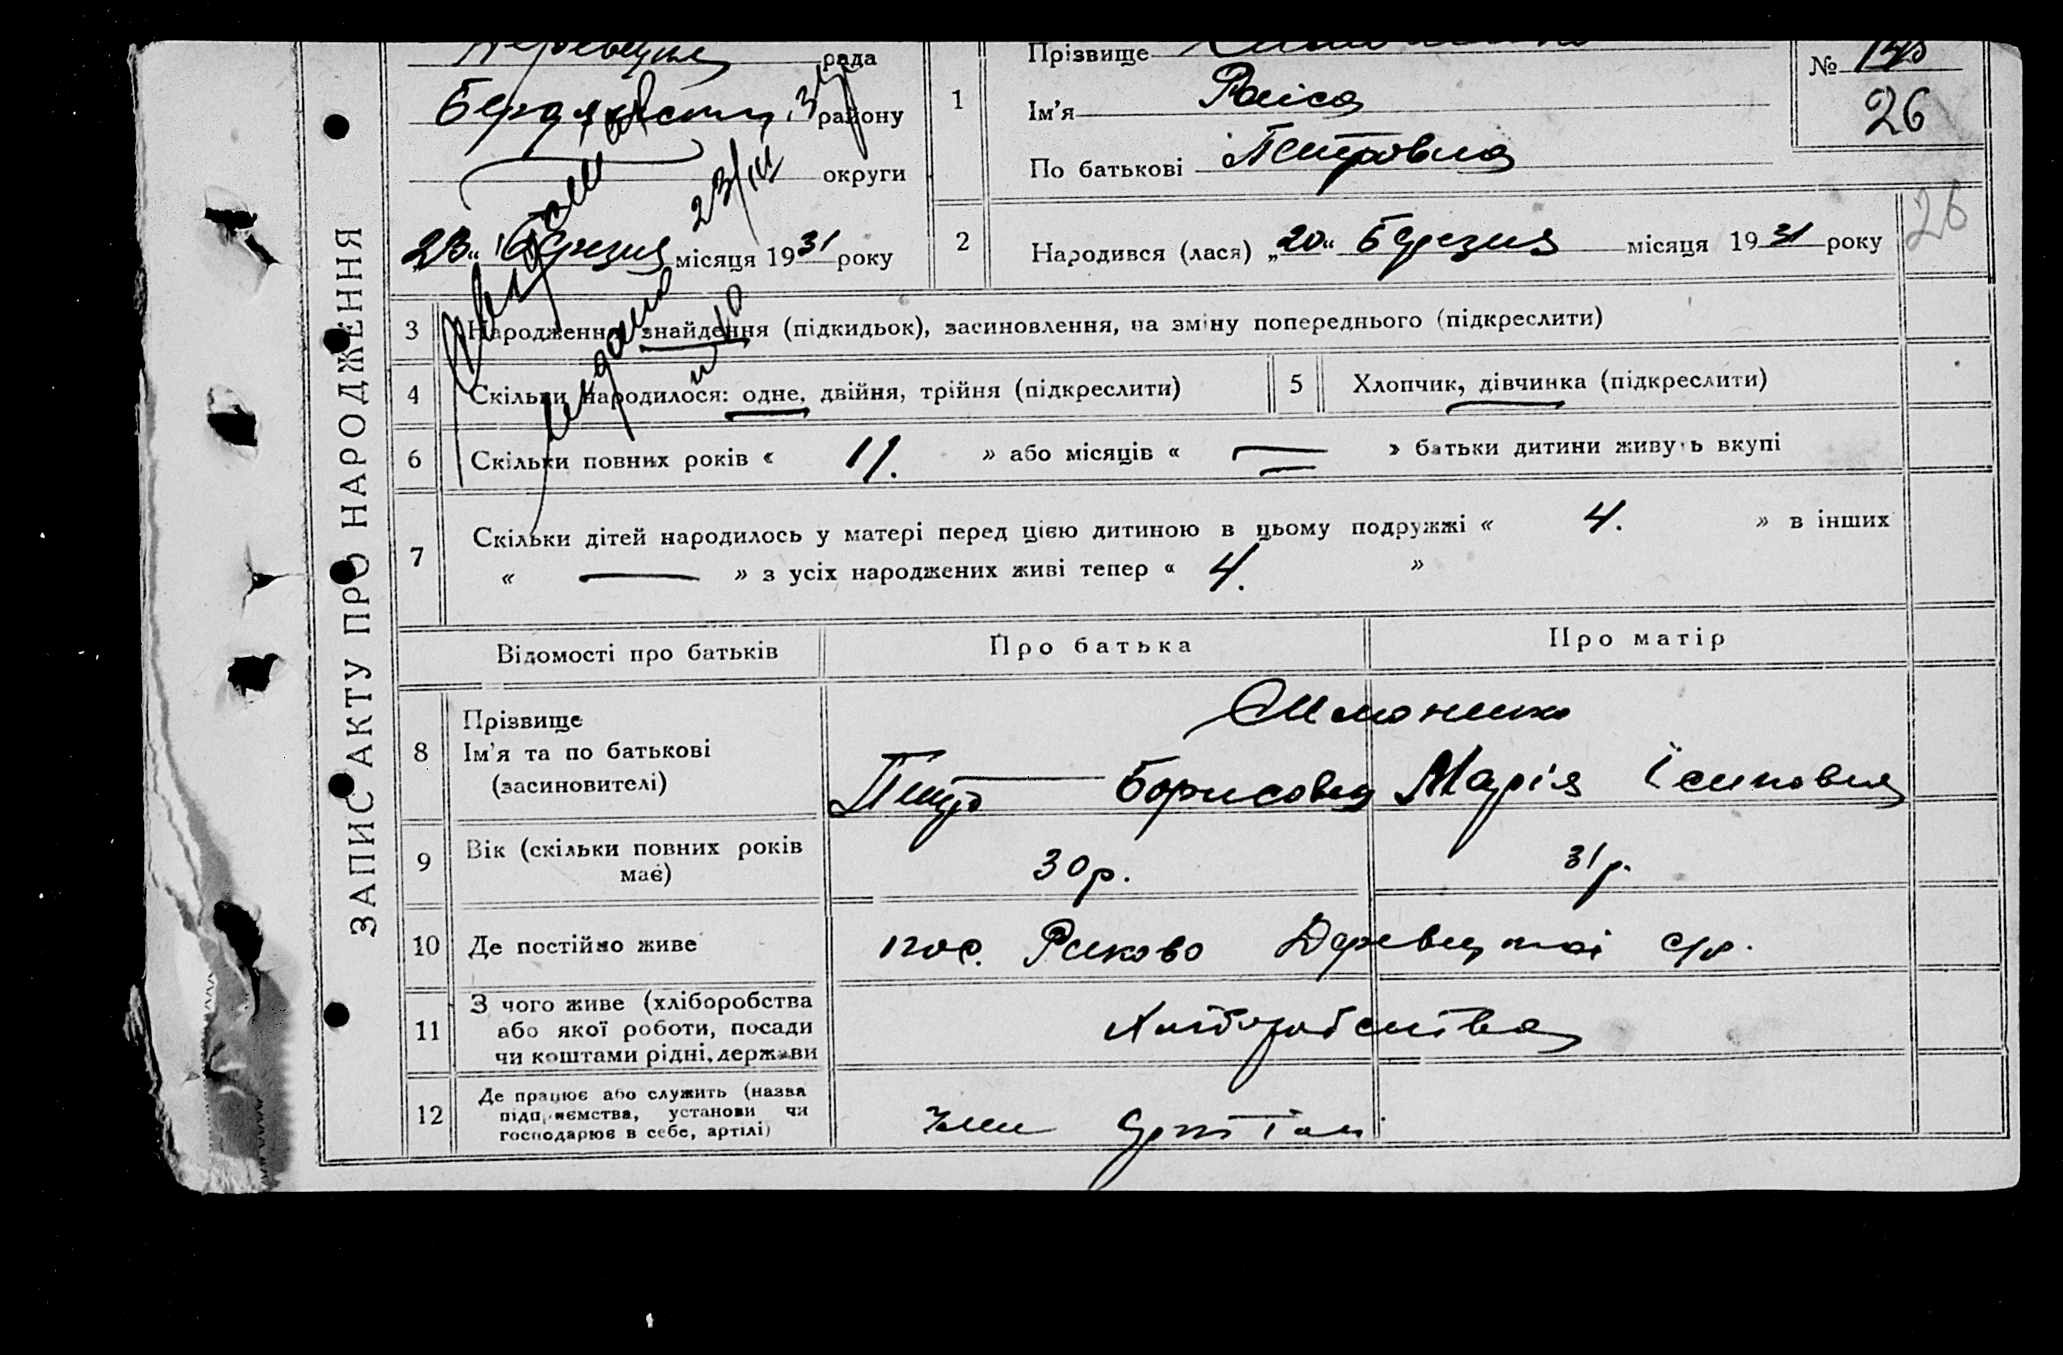 рада
району
округи
„23“ Березня місяця 1931 року
1
Прізвище
Ім'я Раїса
По батькові Петровна
№
26
26
2
Народився (лася) „20“ Березня місяця 1931 року
23/III
ЗАПИС АКТУ ПРО НАРОДЖЕННЯ
3 Народження, знайдення (підкидьок), засиновлення, на зміну попереднього (підкреслити)
4 Скільки народилося: одне, двійня, трійня (підкреслити)
5 Хлопчик, дівчинка (підкреслити)
6 Скільки повних років « 11. » або місяців « — » батьки дитини живуть вкупі
7 Скільки дітей народилось у матері перед цією дитиною в цьому подружжі « 4. » в інших
« — » з усіх народжених живі тепер « 4. »
Відомості про батьків
Про батька
Про матір
8 Прізвище
Ім'я та по батькові
(засновителі)
Петро Борисович
Марія Їсиповна
9 Вік (скільки повних років
має)
30 р.
31 р.
10 Де постійно живе
пос. Риково с/р.
11 З чого живе (хліборобства
або якої роботи, посади
чи коштами рідні, держави
Хліборобства
12 Де працює або служить (назва
підприємства, установи чи
господарює в себе, артілі)
Член Артілі